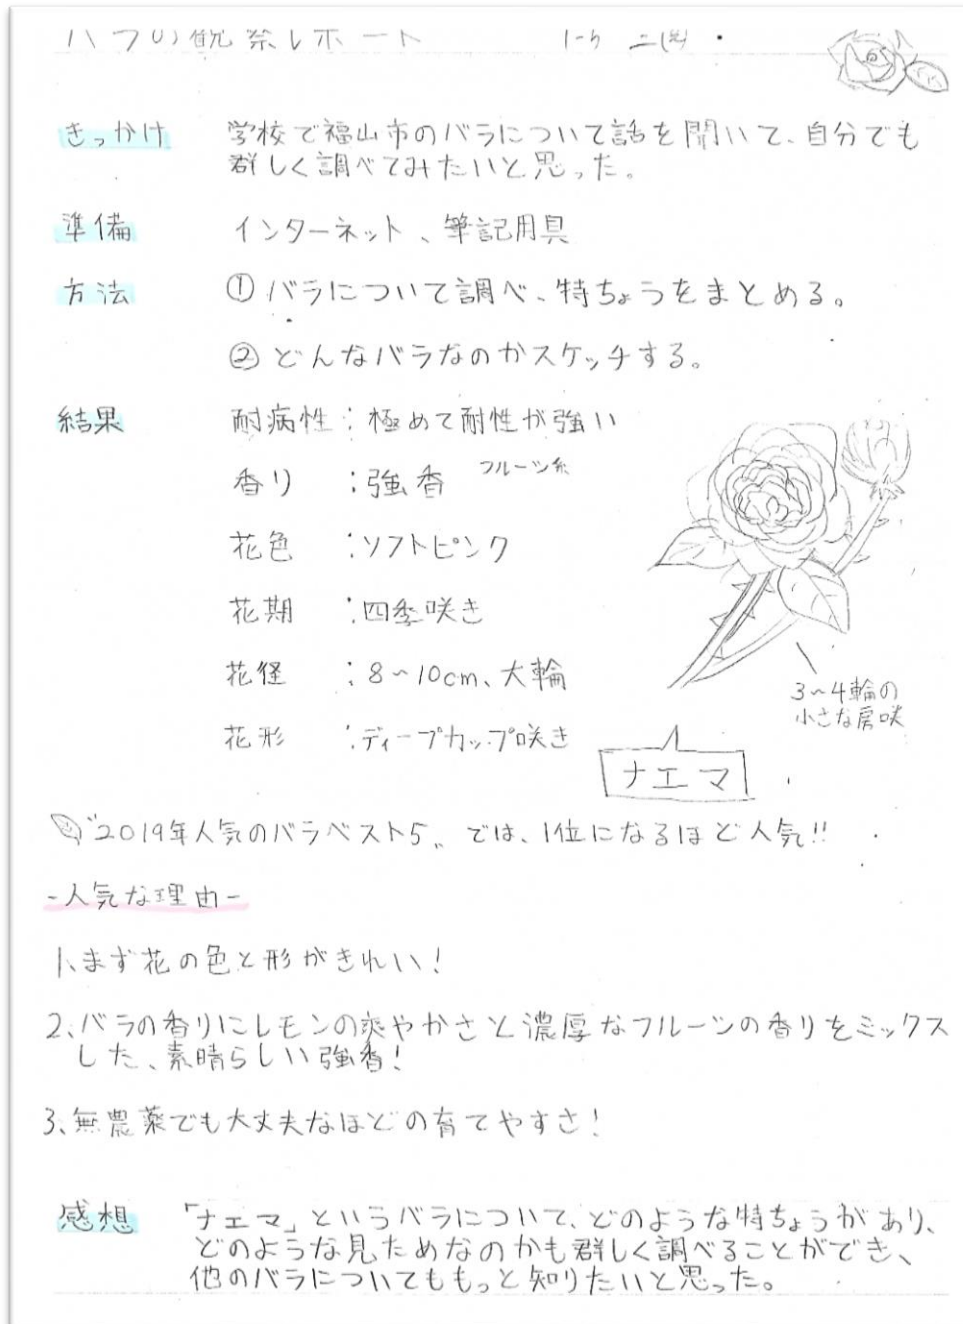 バラの観察レポート
きっかけ 学校で福山市のバラについて話を聞いて、自分でも
群しく調べてみたいと思った。
準備 インターネット、筆記用具
方法 ①バラについて調べ、特ちょうをまとめる。
②どんなバラなのかスケッチする。
結果 耐病性:極めて耐性が強い
香り :強香 フルーツ系
花色 :ソフトピンク
花期 :四季咲き
花径 :8~10cm、大輪
花形 :ディープカップ咲き
3~4輪の
小さな房咲
ナエマ
"2019年人気のバラベスト5〟では、1位になるほど人気!!
-人気な理由-
1、まず花の色と形がきれい!
2、バラの香りにレモンの爽やかさと濃厚なフルーツの香りをミックス
した、素晴らしい強香!
3、無農薬でも大丈夫なほどの育てやすさ!
感想 「ナエマ」というバラについて、どのような特ちょうがあり、
どのような見ためなのかも群しく調べることができ、
他のバラについてももっと知りたいと思った。